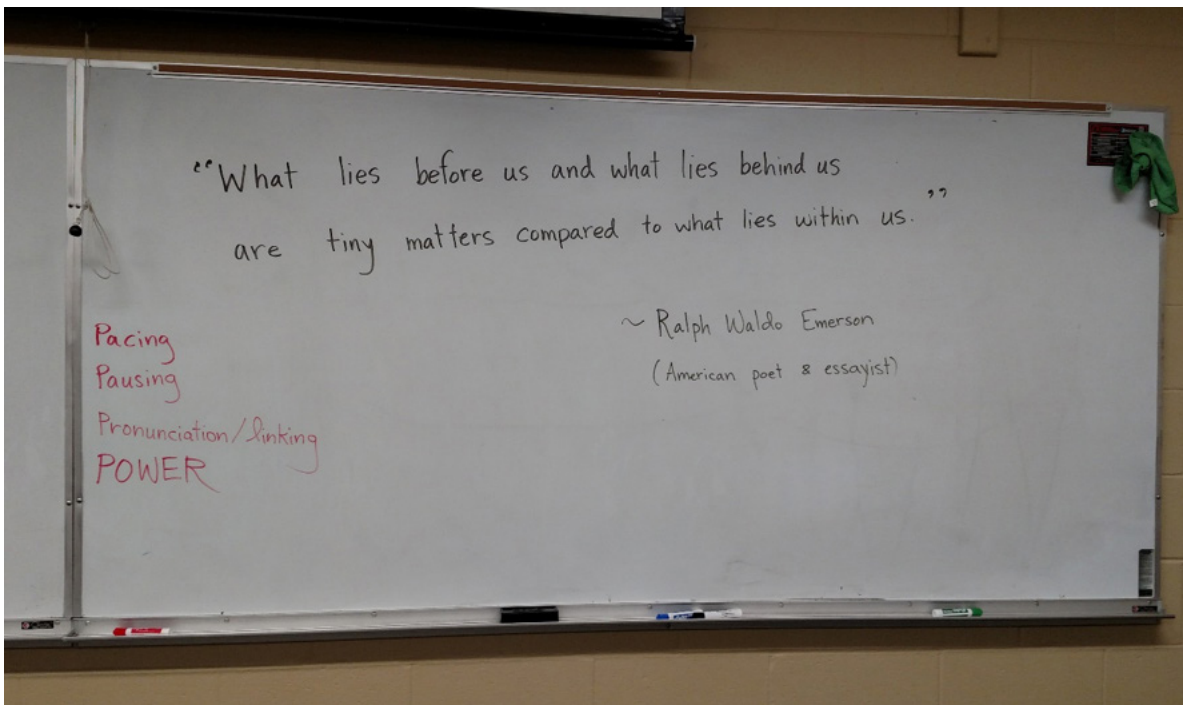 “What lies before us and what lies behind us
are tiny matters compared to what lies within us.”
~ Ralph Waldo Emerson
(American poet & essayist)
Pacing
Pausing
Pronunciation/linking
POWER